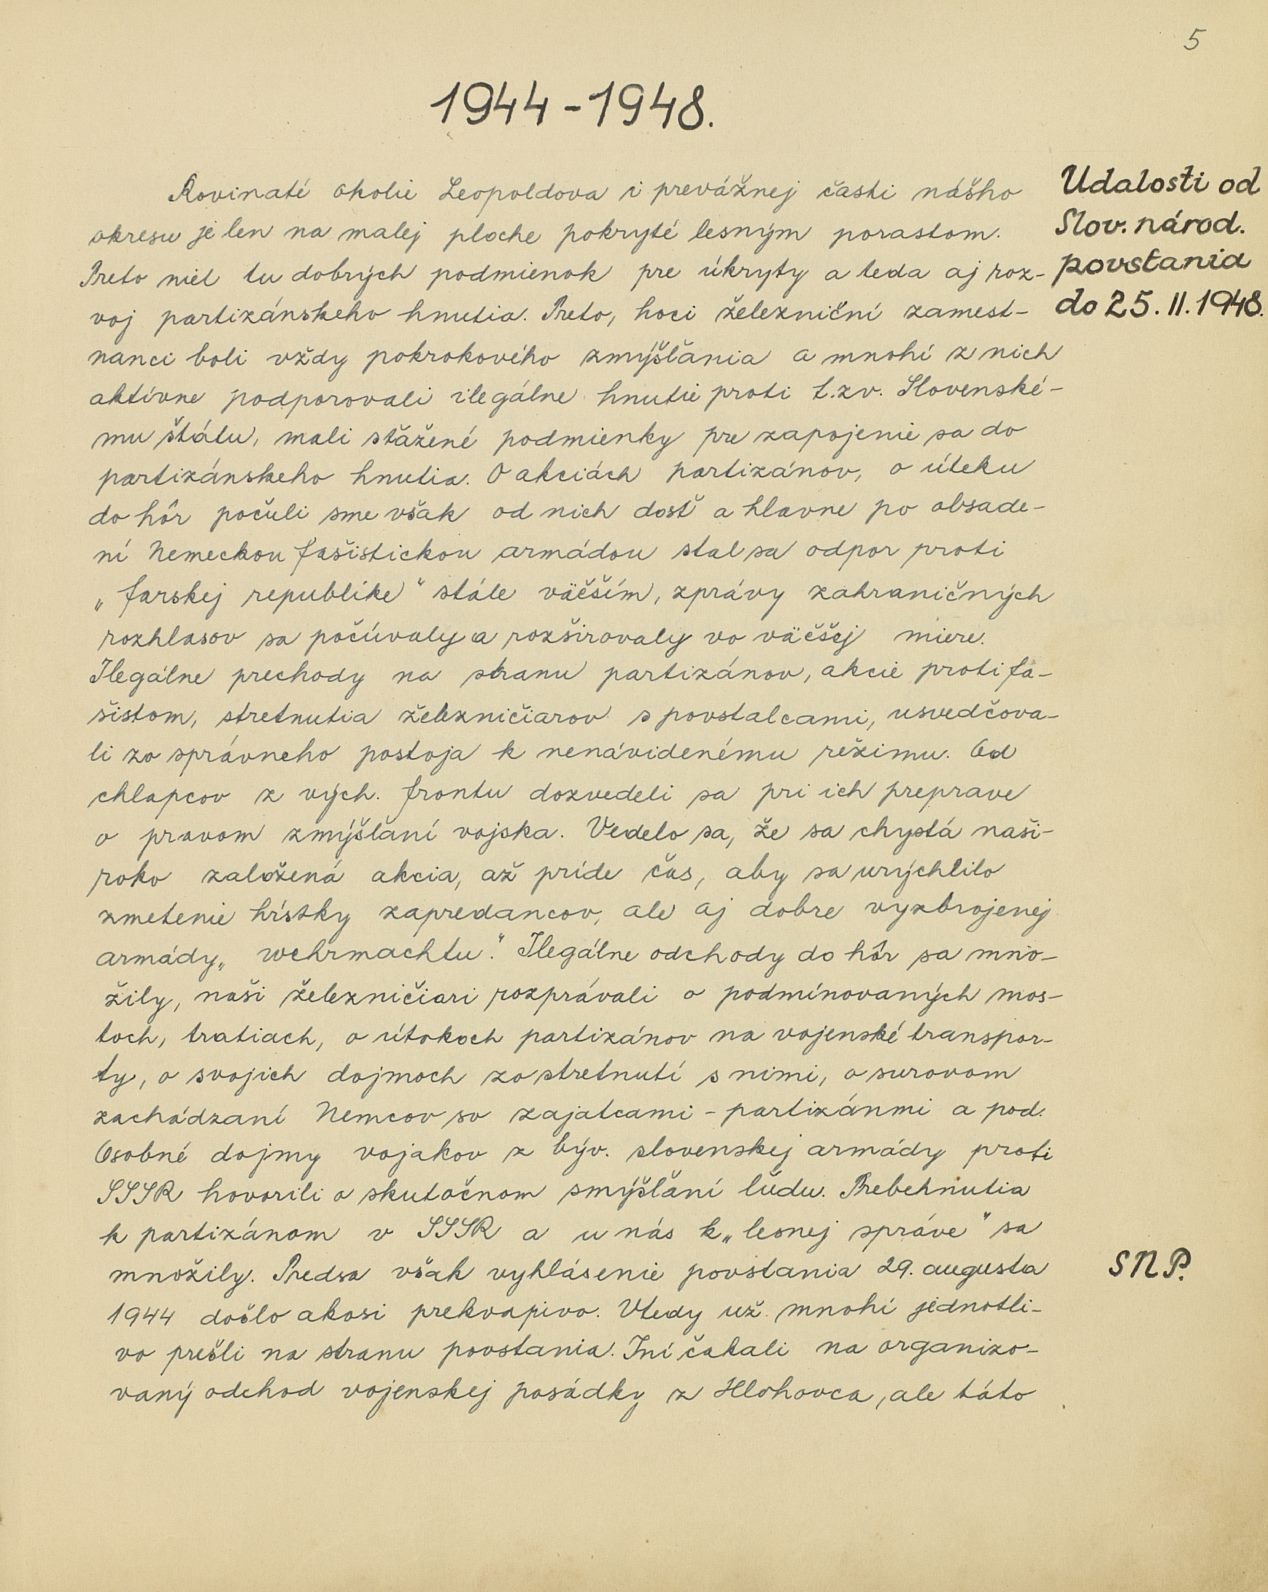 5
1944-1948.
Udalosti od
Slov. národ.
povstania
do 25. II. 1948.
Rovinaté okolie Leopoldova i prevážnej časti nášho
okresu je len na malej ploche pokryté lesným porastom.
Preto niet tu dobrých podmienok pre úkryty a teda aj roz-
voj partizánskeho hnutia. Preto, hoci železniční zamest-
nanci boli vždy pokrokového zmýšľania a mnohí z nich
aktívne podporovali ilegálne hnutie proti t.zv. Slovenské-
mu štátu, mali sťažené podmienky pre zapojenie sa do
partizánskeho hnutia. O akciách partizánov, o úteku
do hôr počuli sme však od nich dosť a hlavne po obsade-
ní Nemeckou fašistickou armádou stal sa odpor proti
„farskej republike" stále väčším, zprávy zahraničných
rozhlasov sa počúvaly a rozširovaly vo väčšej miere.
Ilegálne prechody na stranu partizánov, akcie proti fa-
šistom, stretnutia železničiarov s povstalcami, usvedčova-
li zo správneho postoja k nenávidenému režimu. Od
chlapcov z vých. frontu dozvedeli sa pri ich preprave
o pravom zmýšľaní vojska. Vedelo sa, že sa chystá naši-
roko založená akcia, až príde čas, aby sa urýchlilo
zmetenie hŕstky zapredancov, ale aj dobre vyzbrojenej
armády „wehrmachtu". Ilegálne odchody do hôr sa mno-
žily, naši železničiari rozprávali o podmínovaných mos-
toch, tratiach, o útokoch partizánov na vojenské transpor-
ty, o svojich dojmoch zo stretnutí s nimi, o surovom
zachádzaní Nemcov so zajatcami - partizánmi a pod.
Osobné dojmy vojakov z býv. slovenskej armády proti
SSSR hovorili o skutočnom smýšľaní ľudu. Prebehnutia
k partizánom v SSSR a u nás k „lesnej správe" sa
množily. Predsa však vyhlásenie povstania 29. augusta
SNP.
1944 došlo akosi prekvapivo. Vtedy už mnohí jednotli-
vo prešli na stranu povstania. Iní čakali na organizo-
vaný odchod vojenskej posádky z Hlohovca, ale táto